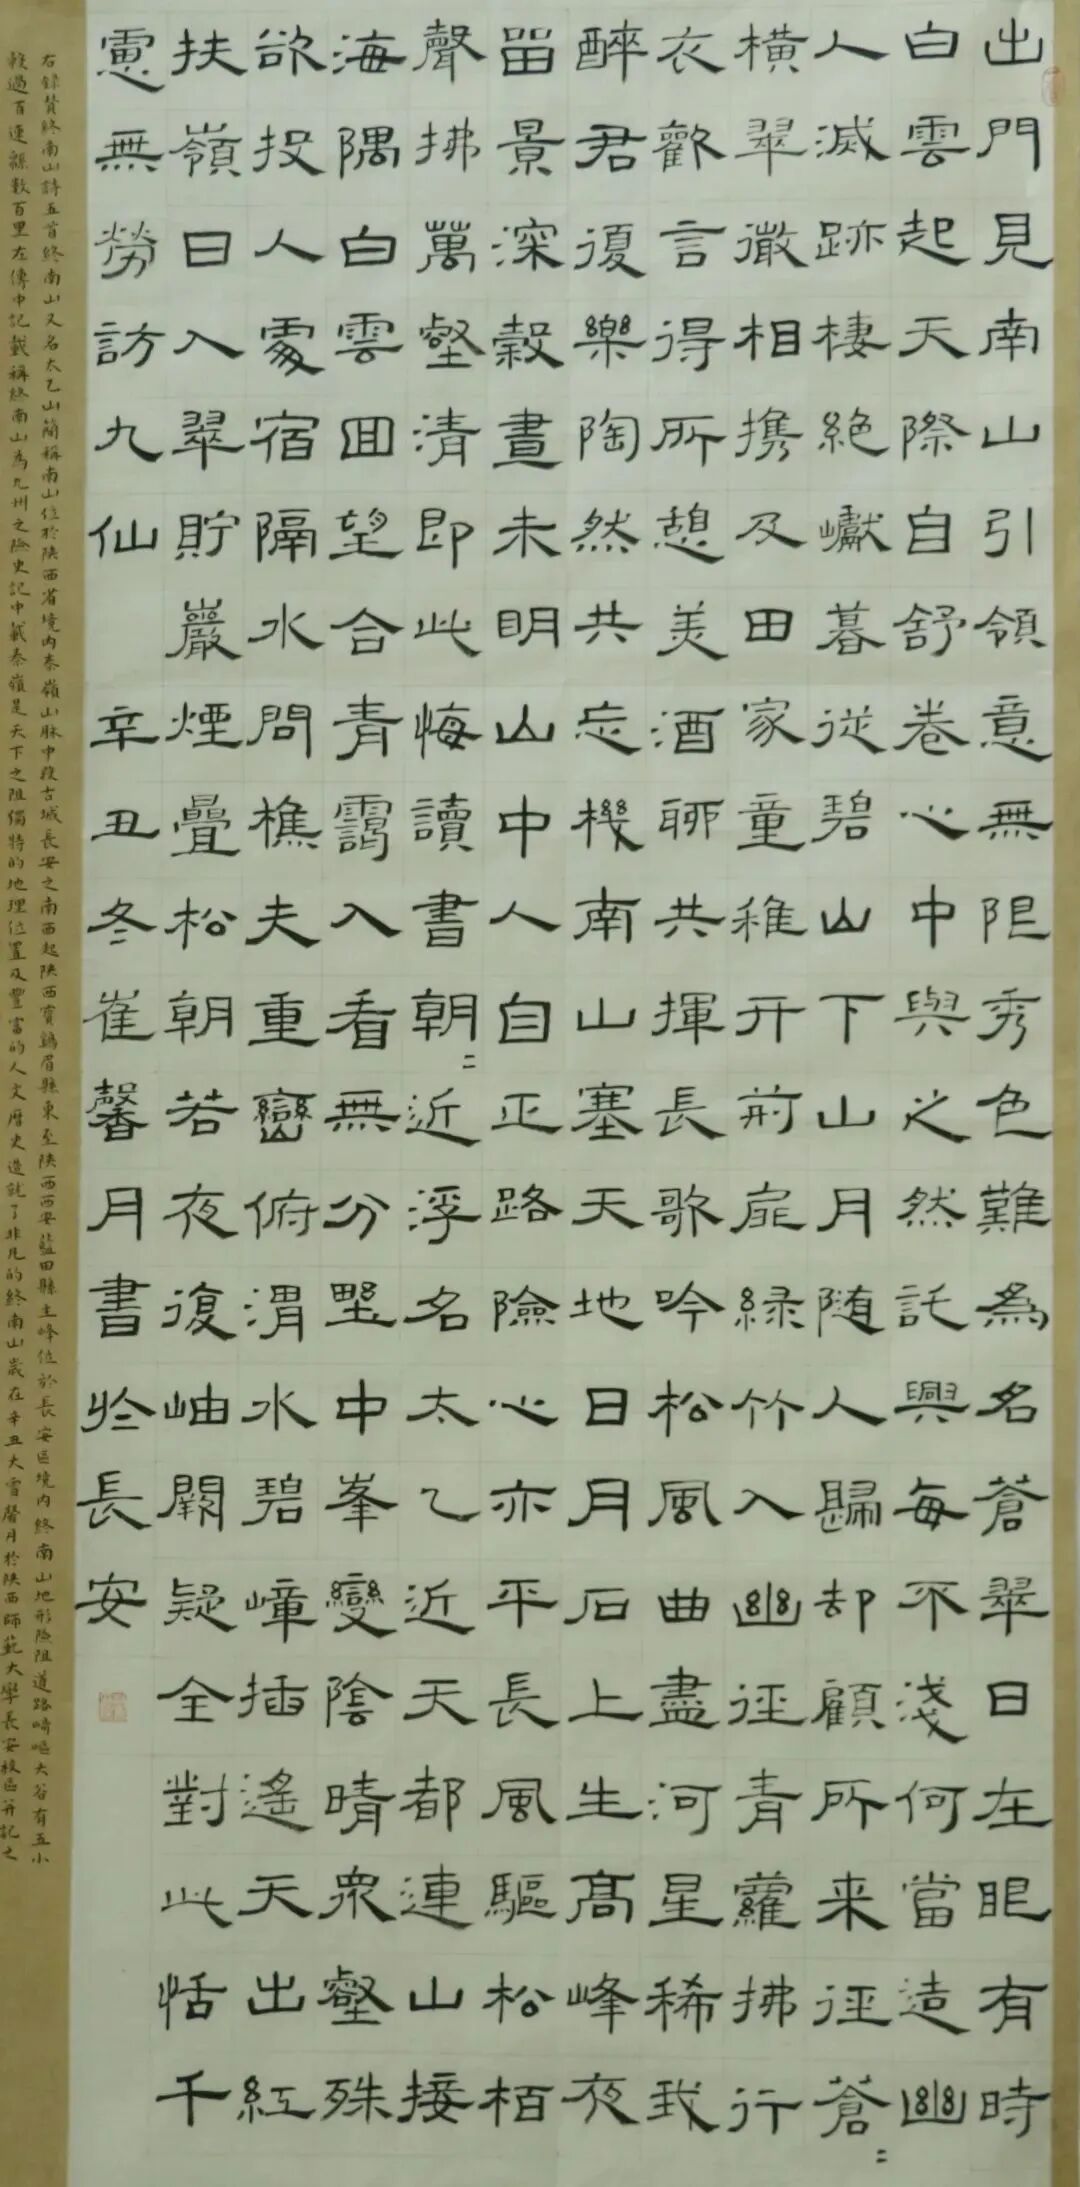 出門見南山引領意無限秀色難為名蒼翠日在眼有時
白雲起天際自舒卷心中與之然託興每不淺何當造幽
人滅跡棲絕巘暮從碧山下山月随人歸却顧所来徑蒼〻
橫翠微相携及田家童稚开荊扉緑竹入幽徑青蘿拂行
衣歡言得所憩美酒聊共揮長歌吟松風曲盡河星稀我
醉君復樂陶然共忘機南山塞天地日月石上生高峰夜
留景深穀晝未明山中人自正路險心亦平長風驅松栢
聲拂萬壑清即此悔讀書朝〻近浮名太乙近天都連山接
海隅白雲回望合青靄入看無分野中峯變陰晴眾壑殊
欲投人處宿隔水問樵夫重巒俯渭水碧嶂插遙天出紅
扶嶺日入翠貯巖煙疊松朝若夜復岫闕疑全對此恬千
慮無勞訪九仙 辛丑冬崔馨月書於長安
右錄贊終南山詩五首終南山又名太乙山簡稱南山位於陝西省境內秦嶺山脉中段古城長安之南西起陝西寶鷄眉縣東至陝西西安藍田縣主峰位於長安區境內終南山地形險阻道路崎嶇大谷有五小
穀過百連綿數百里左傳中記載稱終南山為九州之險史記中載秦嶺是天下之阻獨特的地理位置及豐富的人文歷史造就了非凡的終南山歲在辛丑大雪馨月於陝西師範大學長安校區并記之